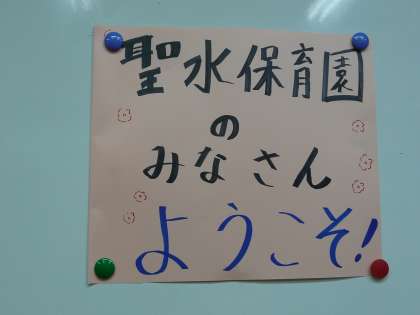 聖水保育園
の
みなさん
ようこそ!